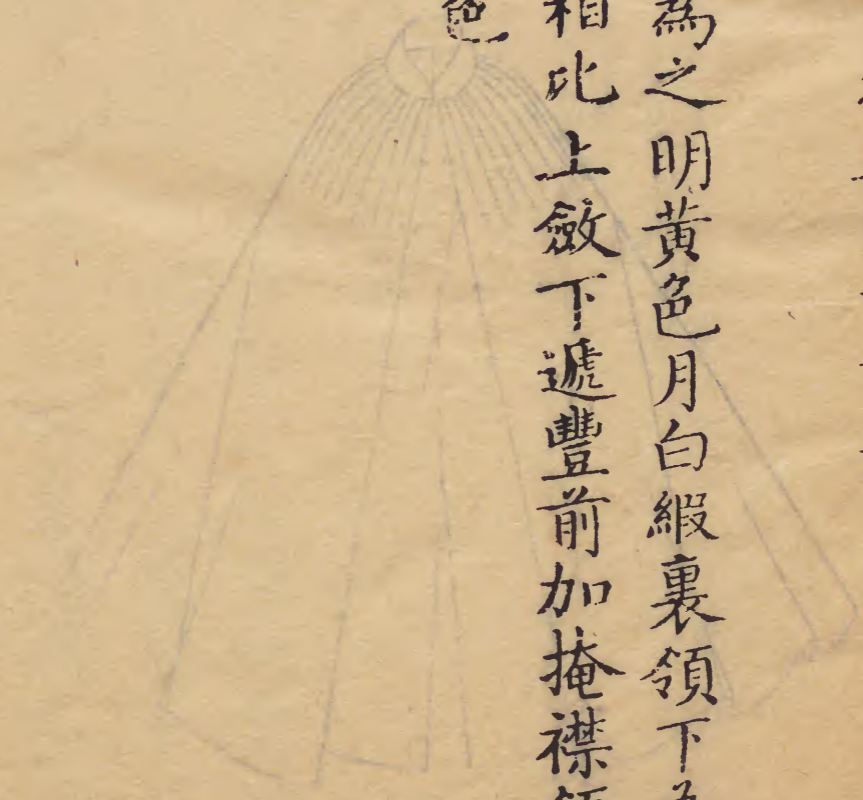 為之明黃色月白緞裏領下
相比上斂下遞豐前加掩襟
色